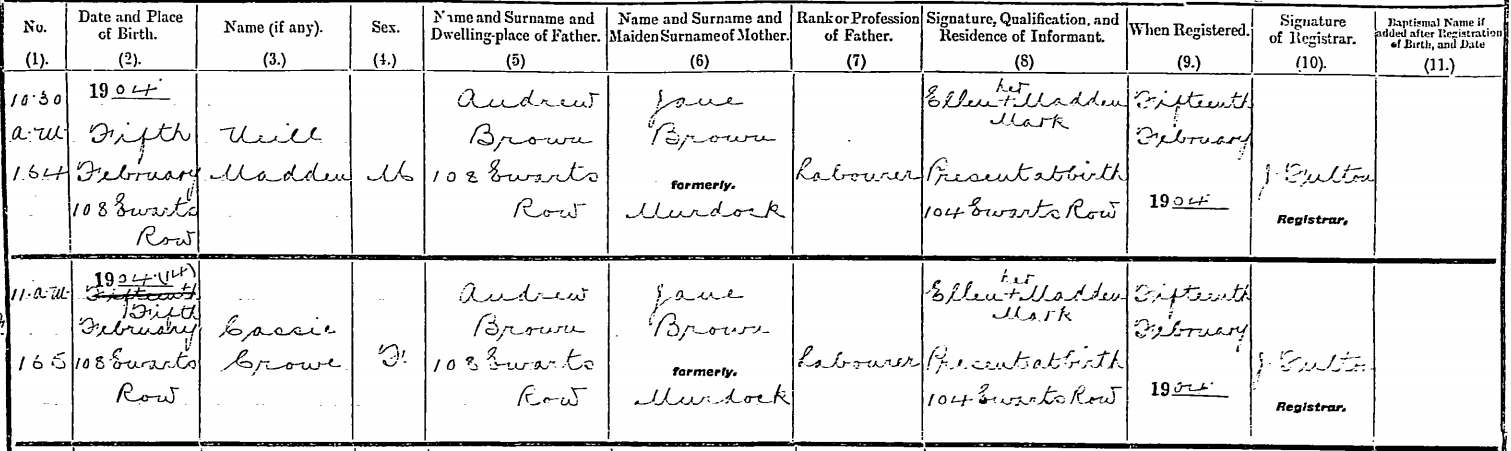 No. Date and Place of Birth. Name (if any). Sex. Name and Surname and Dwelling-place of Father. Name and Surname and Maiden Surname of Mother. Rank or Profession of Father. Signature, Qualification, and Residence of Informant. When Registered. Signature of Registrar. Baptismal Name if added after Registration of Birth, and Date
(1). (2). (3.) (4.) (5) (6) (7) (8) (9.) (10). (11.)
10.30 1904 Andrew Jane Ellen her + Madden Fifteenth
a.m. Fifth Neill Brown Brown Mark February
164 February Madden M 108 Ewarts formerly. Labourer Present at birth J. Fulton
108 Ewarts Row Murdock 104 Ewarts Row 1904 Registrar.
Row
1904 (14)
11.a.m. Fifteenth Andrew Jane Ellen her + Madden Fifteenth
Fifth
February Cassie Brown Brown Mark February
165 108 Ewarts Crowe F. 108 Ewarts formerly. Labourer Present at birth J. Fulton
Row Row Murdock 104 Ewarts Row 1904 Registrar.